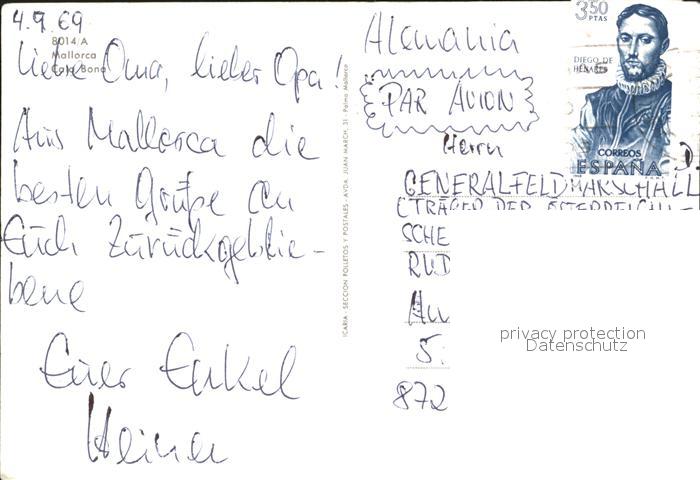 4.9.69
8014/A
Mallorca
Cala Bona
Liebe Oma, lieber Opa!
Aus Mallorca die
besten Grüße an
Euch Zurückgeblie-
bene
Euer Enkel
Heiner
ICARIA - SECCION FOLLETOS Y POSTALES - AVDA. JUAN MARCH, 31 - Palma Mallorca
Alemania
PAR AVION
Herrn
GENERALFELDMARSCHALL
(TRÄGER DER ÖSTERREICHI-
SCHE
RUD
Au
5.
872
3,50
PTAS
DIEGO DE
HENARES
CORREOS
ESPAÑA
privacy protection
Datenschutz